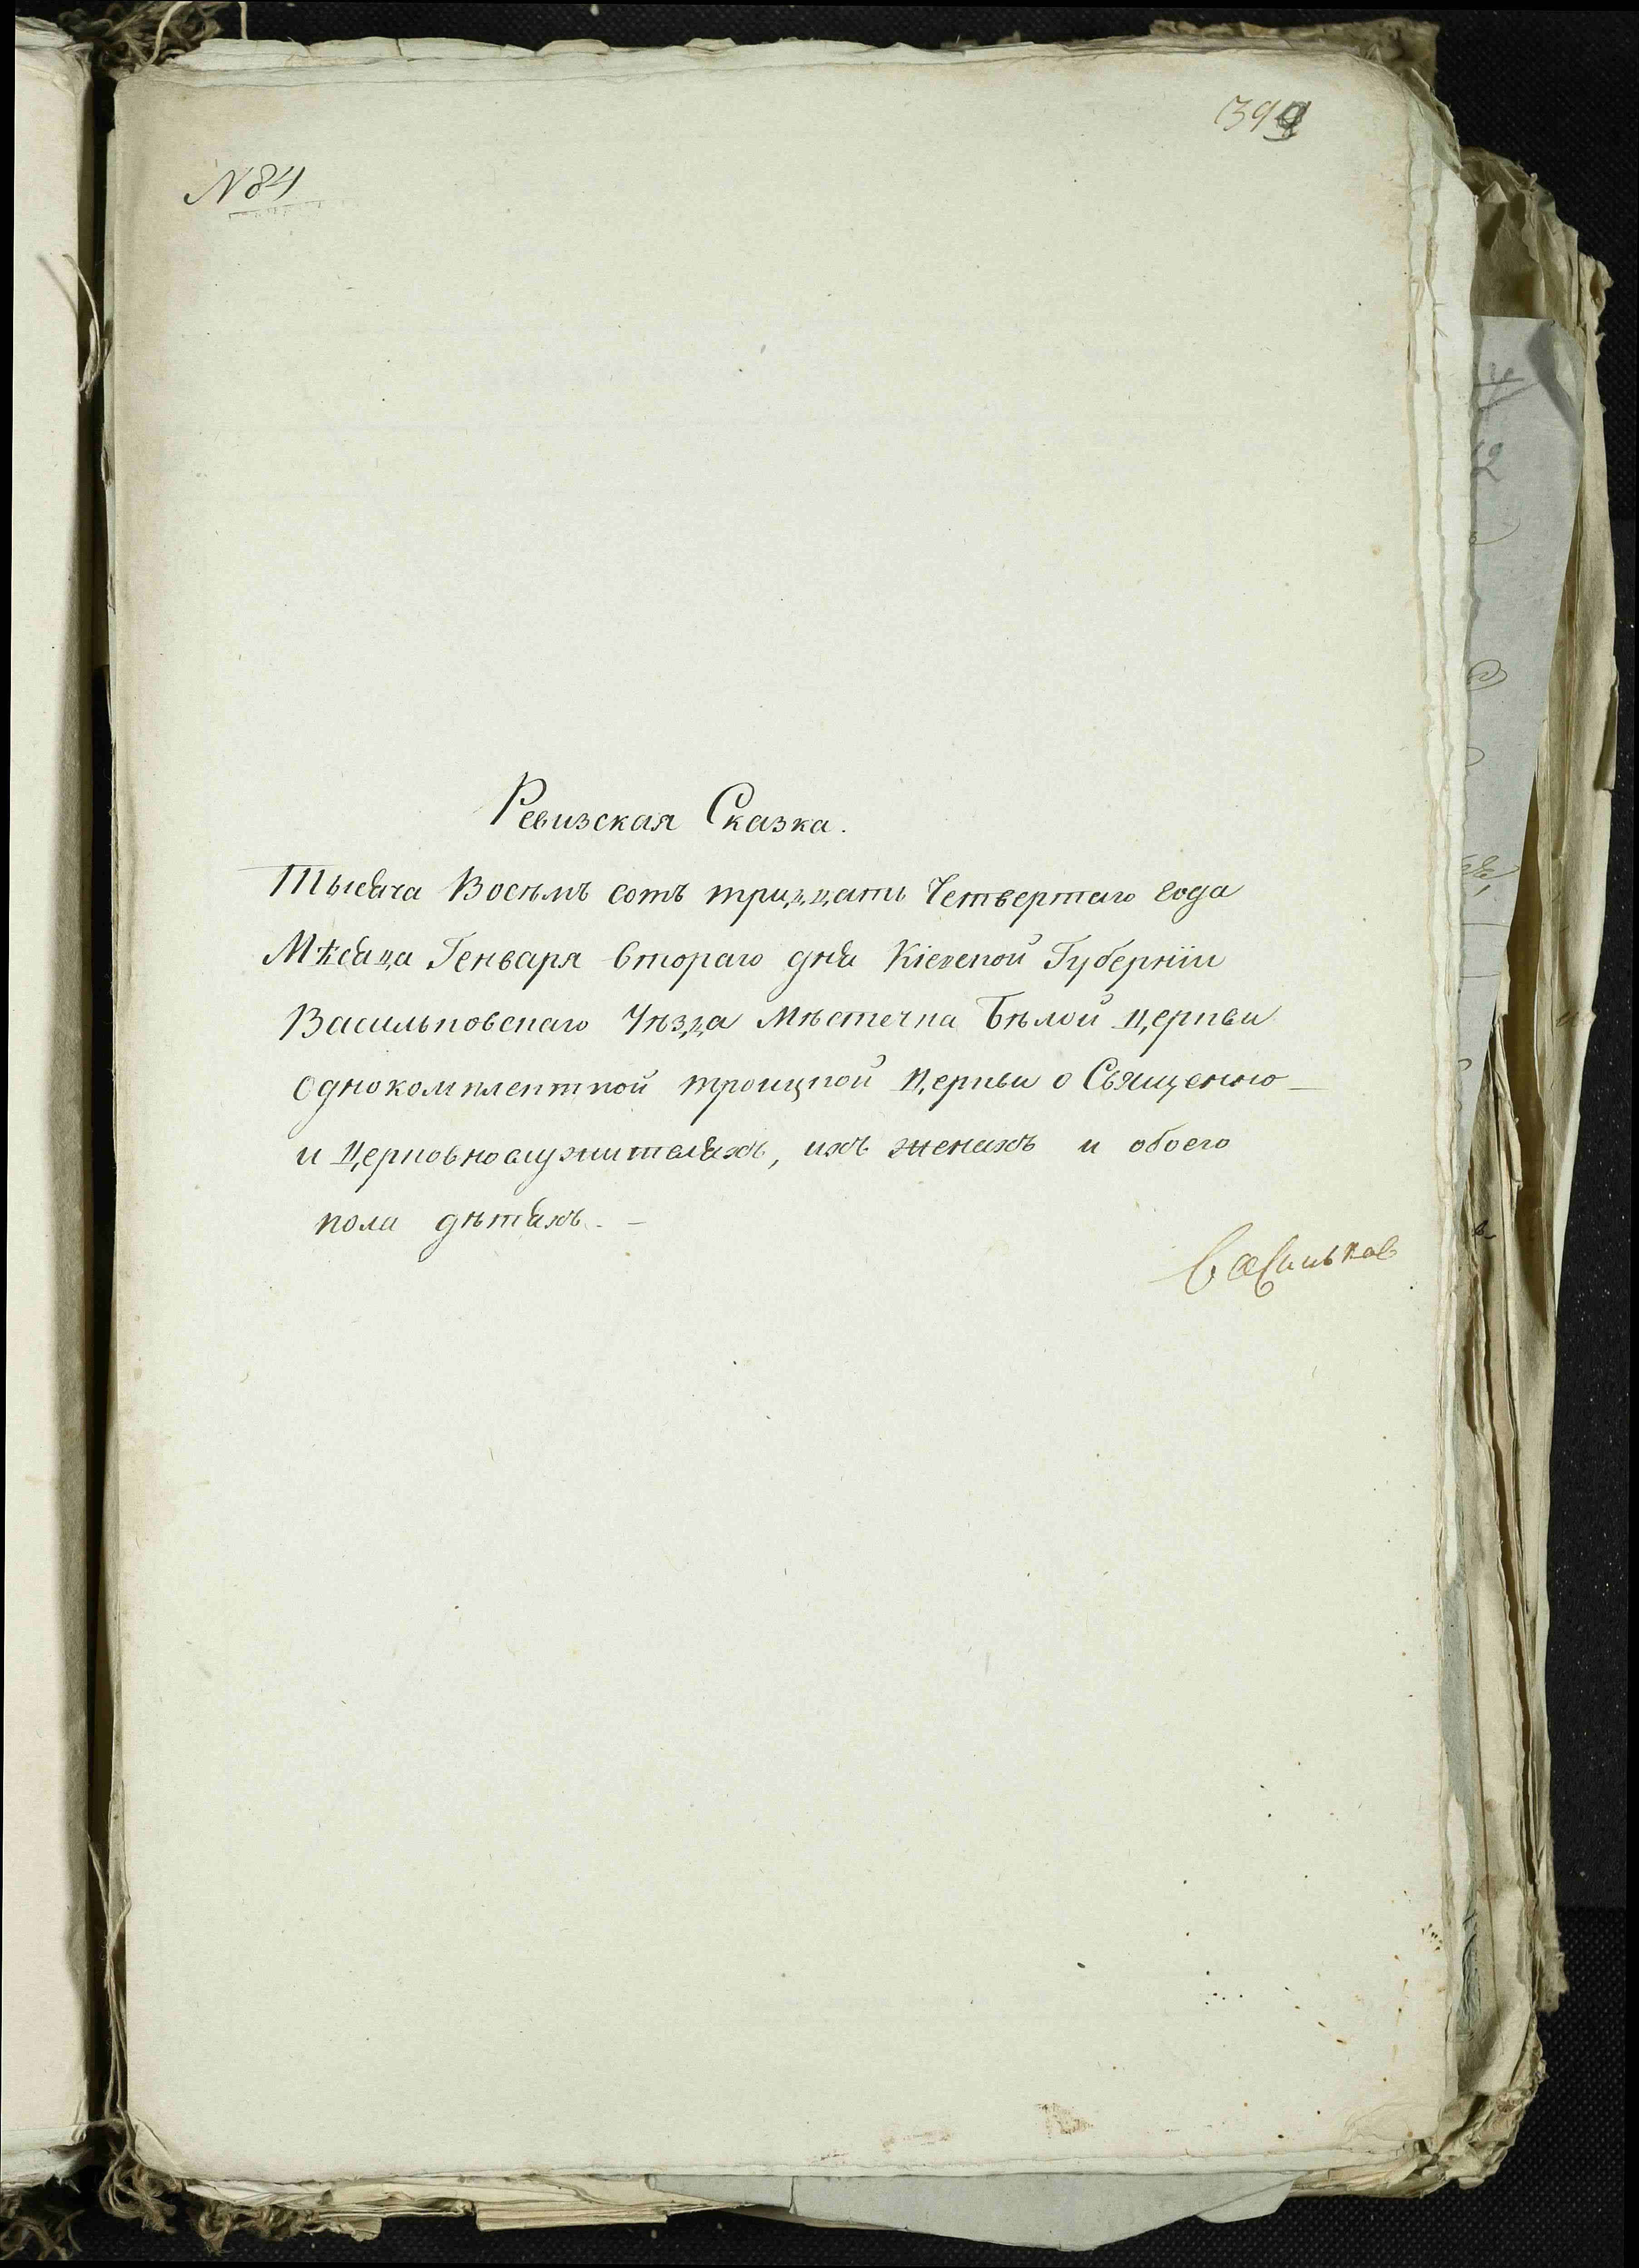 399
N 84
Ревизская Сказка.
Тысяча Восѣмъ сотъ тридцать Четвертаго года
Мѣсяца Генваря втораго дня Кіевской Губерніи
Васильковскаго Уѣзда Мѣстечка Бѣлой Церкви
Однокомплектной троицкой Церкви о Священно-
и Церковнослужителяхъ, ихъ женахъ и обоего
пола дѣтяхъ. -
Васильков